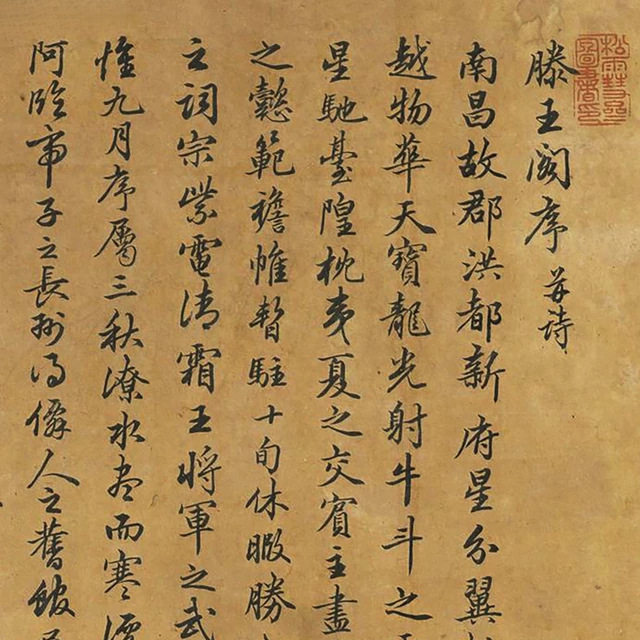 滕王閣序 并詩
南昌故郡洪都新府星分翼
越物華天寶龍光射牛斗之
星馳臺隍枕夷夏之交賓主盡
之懿範襜帷暫駐十旬休暇勝
之詞宗紫電清霜王將軍之武
惟九月序屬三秋潦水盡而寒潭
阿臨帝子之長洲得僊人之舊館